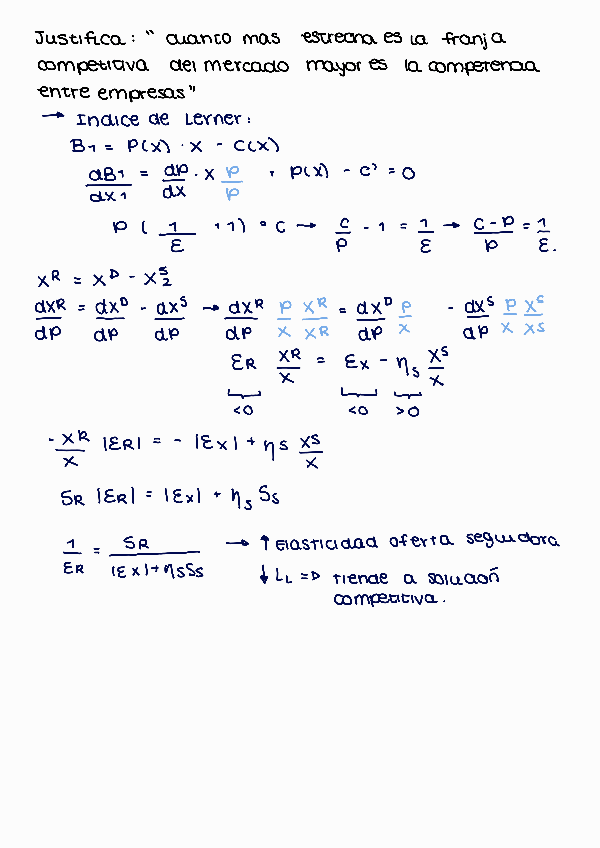 Justifica: " cuanto mas estrecha es la franja
competitiva del mercado mayor es la competencia
entre empresas"
→ Indice de Lerner:
B1 = P(x) · x - C(x)
dB1/dx1 = dp/dx · x p/p + p(x) - c' = 0
p ( 1/ε + 1) = c → c/p - 1 = 1/ε → c-p/p = 1/ε.
x^R = x^D - x^S_2
dx^R/dp = dx^D/dp - dx^S/dp → dx^R/dp p/x x^R/x^R = dx^D/dp p/x - dx^S/dp p/x x^S/x^S
ε_R x^R/x = ε_x - η_s x^S/x
<0 <0 >0
- x^R/x |ε_R| = - |ε_x| + η_s x^S/x
S_R |ε_R| = |ε_x| + η_s S_s
1/ε_R = S_R/|ε_x|+η_s S_s → ↑ elasticidad oferta seguidora
↓ L_L => tiende a solución
competitiva.